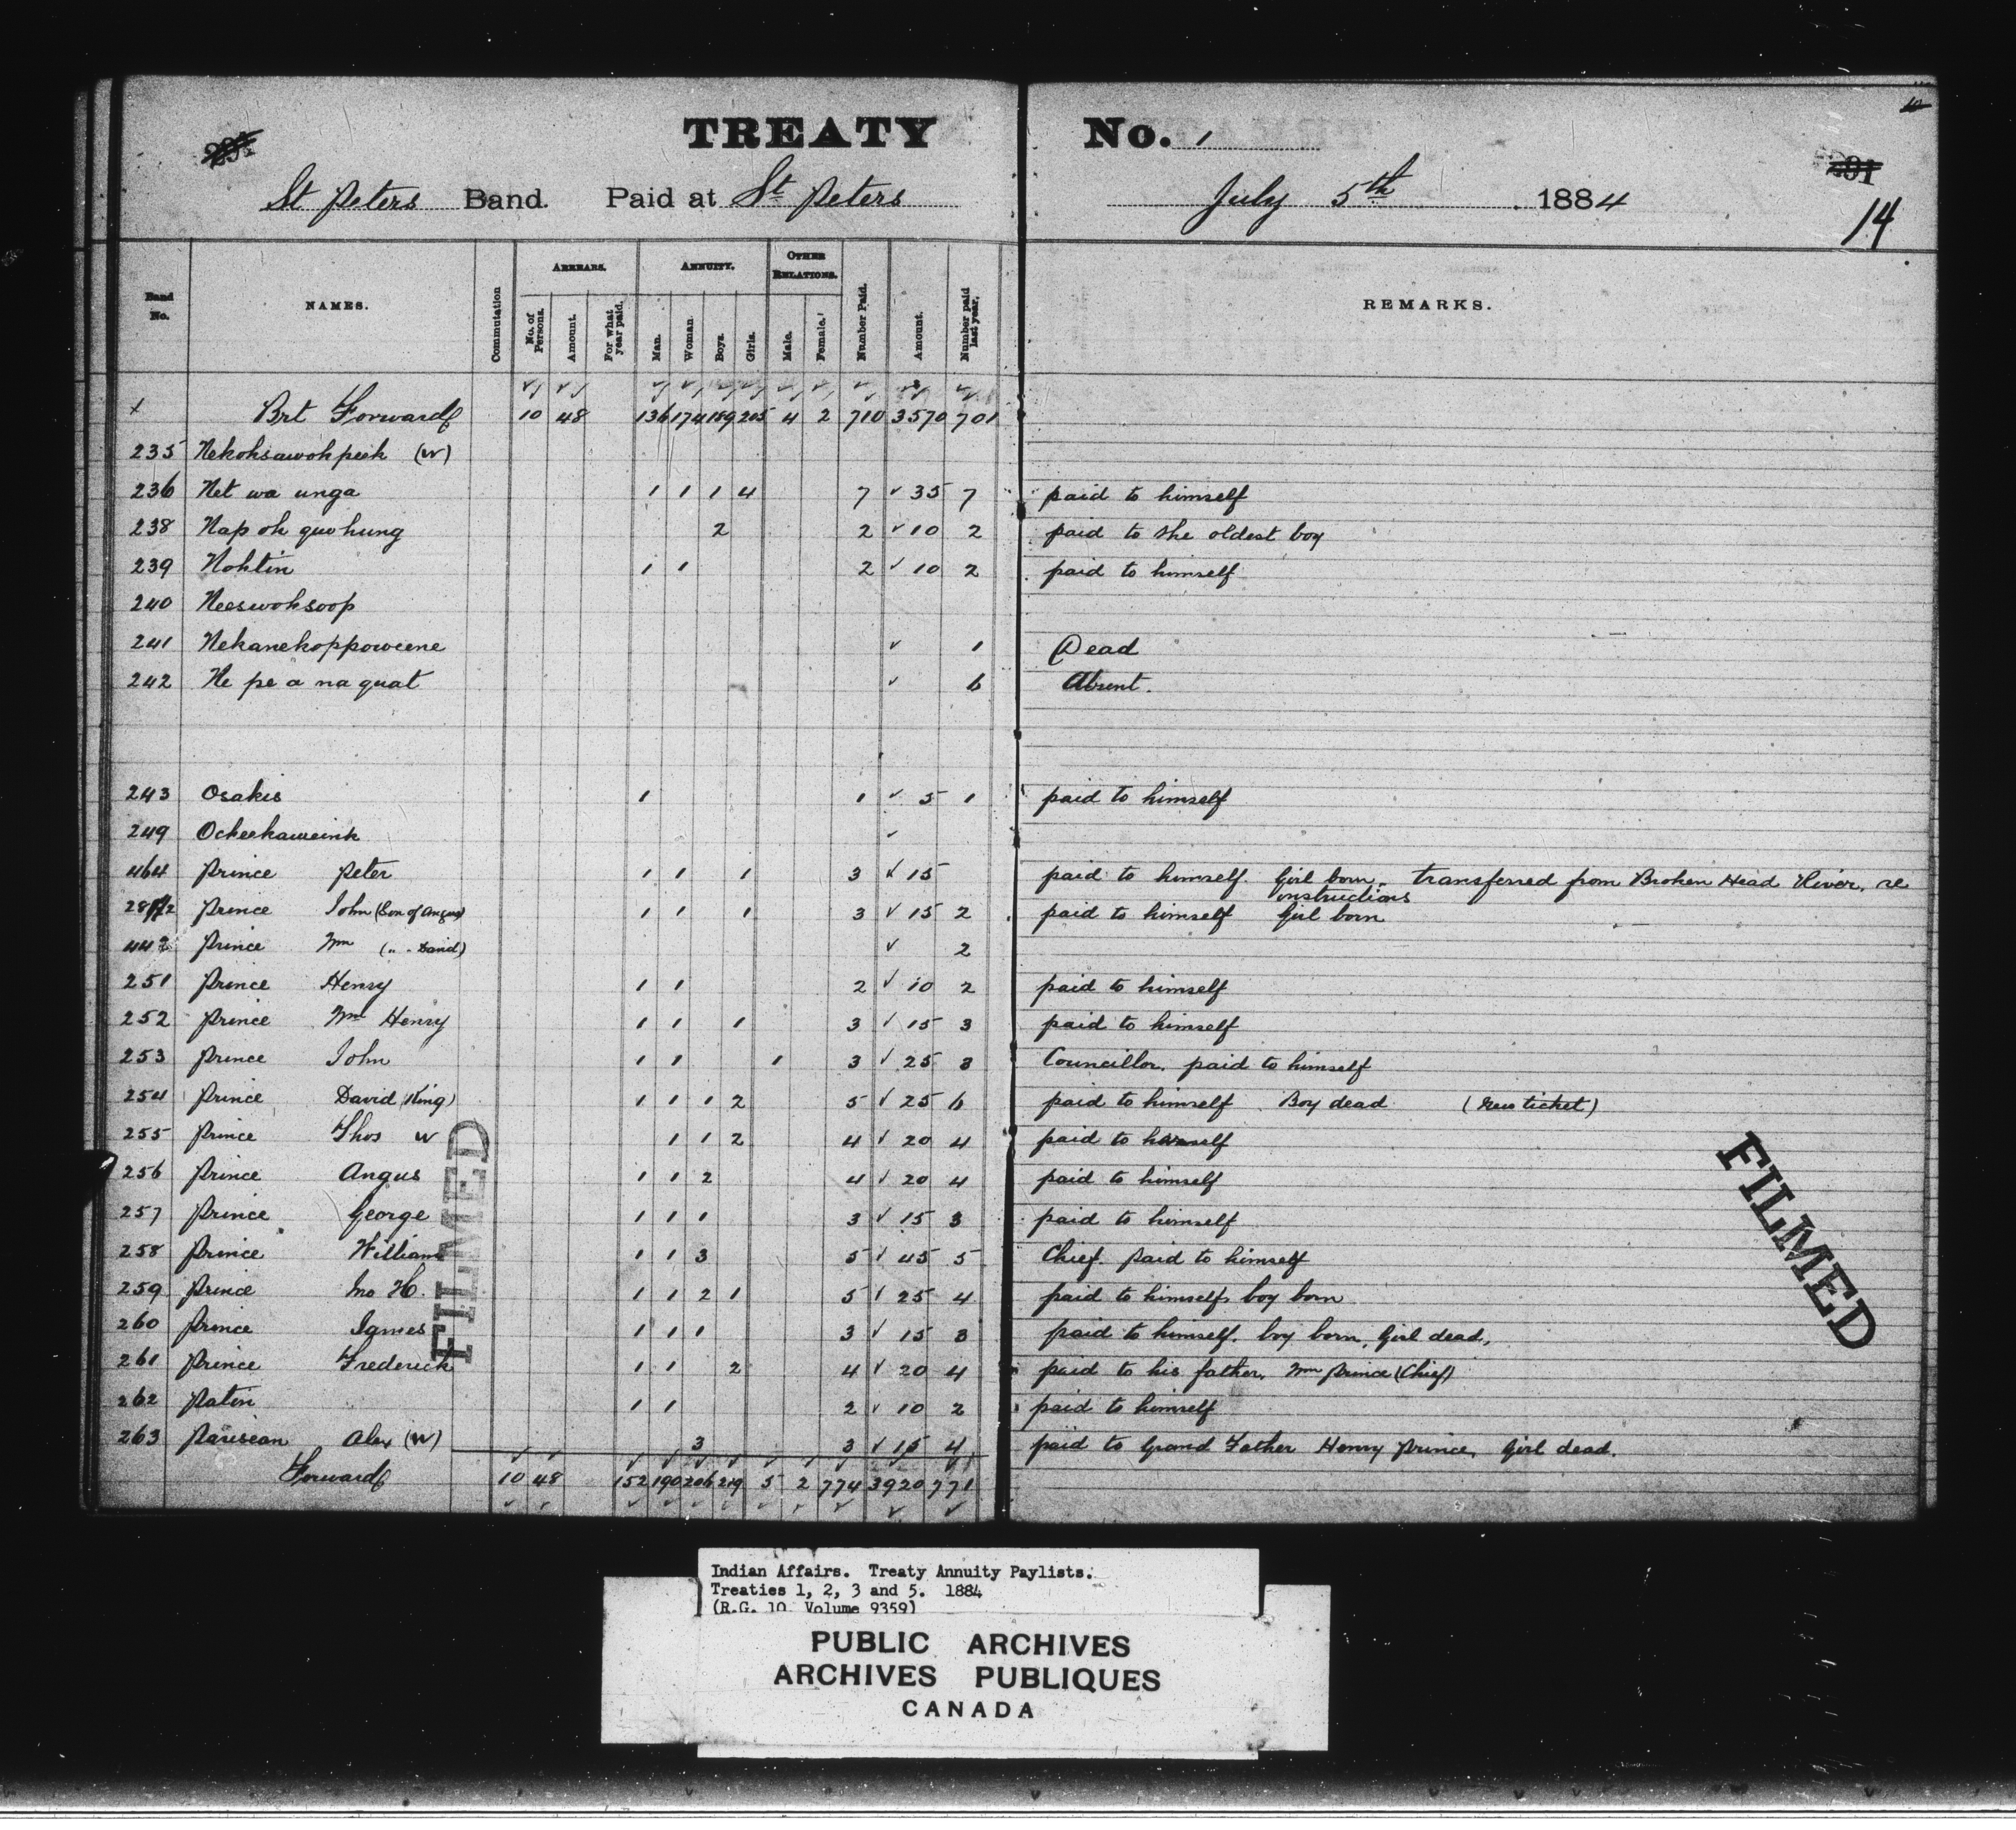 TREATY No. 1
St Peters Band. Paid at St Peters July 5th 1884
14
Band No. NAMES. Commutation ARREARS. No. of Persons. Amount. For what year paid. ANNUITY. Man. Woman. Boys. Girls. OTHER RELATIONS. Male. Female. Number Paid. Amount. Number paid last year. REMARKS.
+ Brt Forward 10 48 136 174 189 205 4 2 710 3570 701
235 Nekohsawohpeek (W)
236 Net wa unga 1 1 1 4 7 ✓ 35 7 paid to himself
238 Nap oh quo hung 2 2 ✓ 10 2 paid to the oldest boy
239 Nohtin 1 1 2 ✓ 10 2 paid to himself
240 Neeswohsoop
241 Nekanekoppoweene ✓ 1 Dead
242 Ne pe a na quat ✓ 6 Absent.
243 Osakis 1 1 ✓ 5 1 paid to himself
249 Ocheekaweink ✓
464 Prince Peter 1 1 1 3 ✓ 15 paid to himself. Girl born, transferred from Broken Head River, re instructions
Prince John (Son of Angus) 1 1 1 3 ✓ 15 2 paid to himself Girl born
442 Prince Wm (" " David) ✓ 2
251 Prince Henry 1 1 2 ✓ 10 2 paid to himself
252 Prince Wm Henry 1 1 1 3 ✓ 15 3 paid to himself
253 Prince John 1 1 1 3 ✓ 25 3 Councillor. paid to himself
254 Prince David (King) 1 1 1 2 5 ✓ 25 6 paid to himself. Boy dead (New ticket)
255 Prince Thos W 1 1 2 4 ✓ 20 4 paid to herself
256 Prince Angus 1 1 2 4 ✓ 20 4 paid to himself
257 Prince George 1 1 1 3 ✓ 15 3 paid to himself
258 Prince William 1 1 3 5 ✓ 45 5 Chief. Paid to himself
259 Prince Jno H. 1 1 2 1 5 ✓ 25 4 paid to himself, boy born
260 Prince James 1 1 1 3 ✓ 15 3 paid to himself. boy born, Girl dead,
261 Prince Frederick 1 1 2 4 ✓ 20 4 paid to his father, Wm Prince (Chief)
262 Patin 1 1 2 ✓ 10 2 paid to himself
263 Parisean Alex (W) 3 3 ✓ 15 4 paid to Grand Father Henry Prince, Girl dead.
Forward 10 48 152 190 206 219 5 2 774 3920 771
FILMED
FILMED
Indian Affairs. Treaty Annuity Paylists.
Treaties 1, 2, 3 and 5. 1884
(R.G. 10 Volume 9359)
PUBLIC ARCHIVES
ARCHIVES PUBLIQUES
CANADA